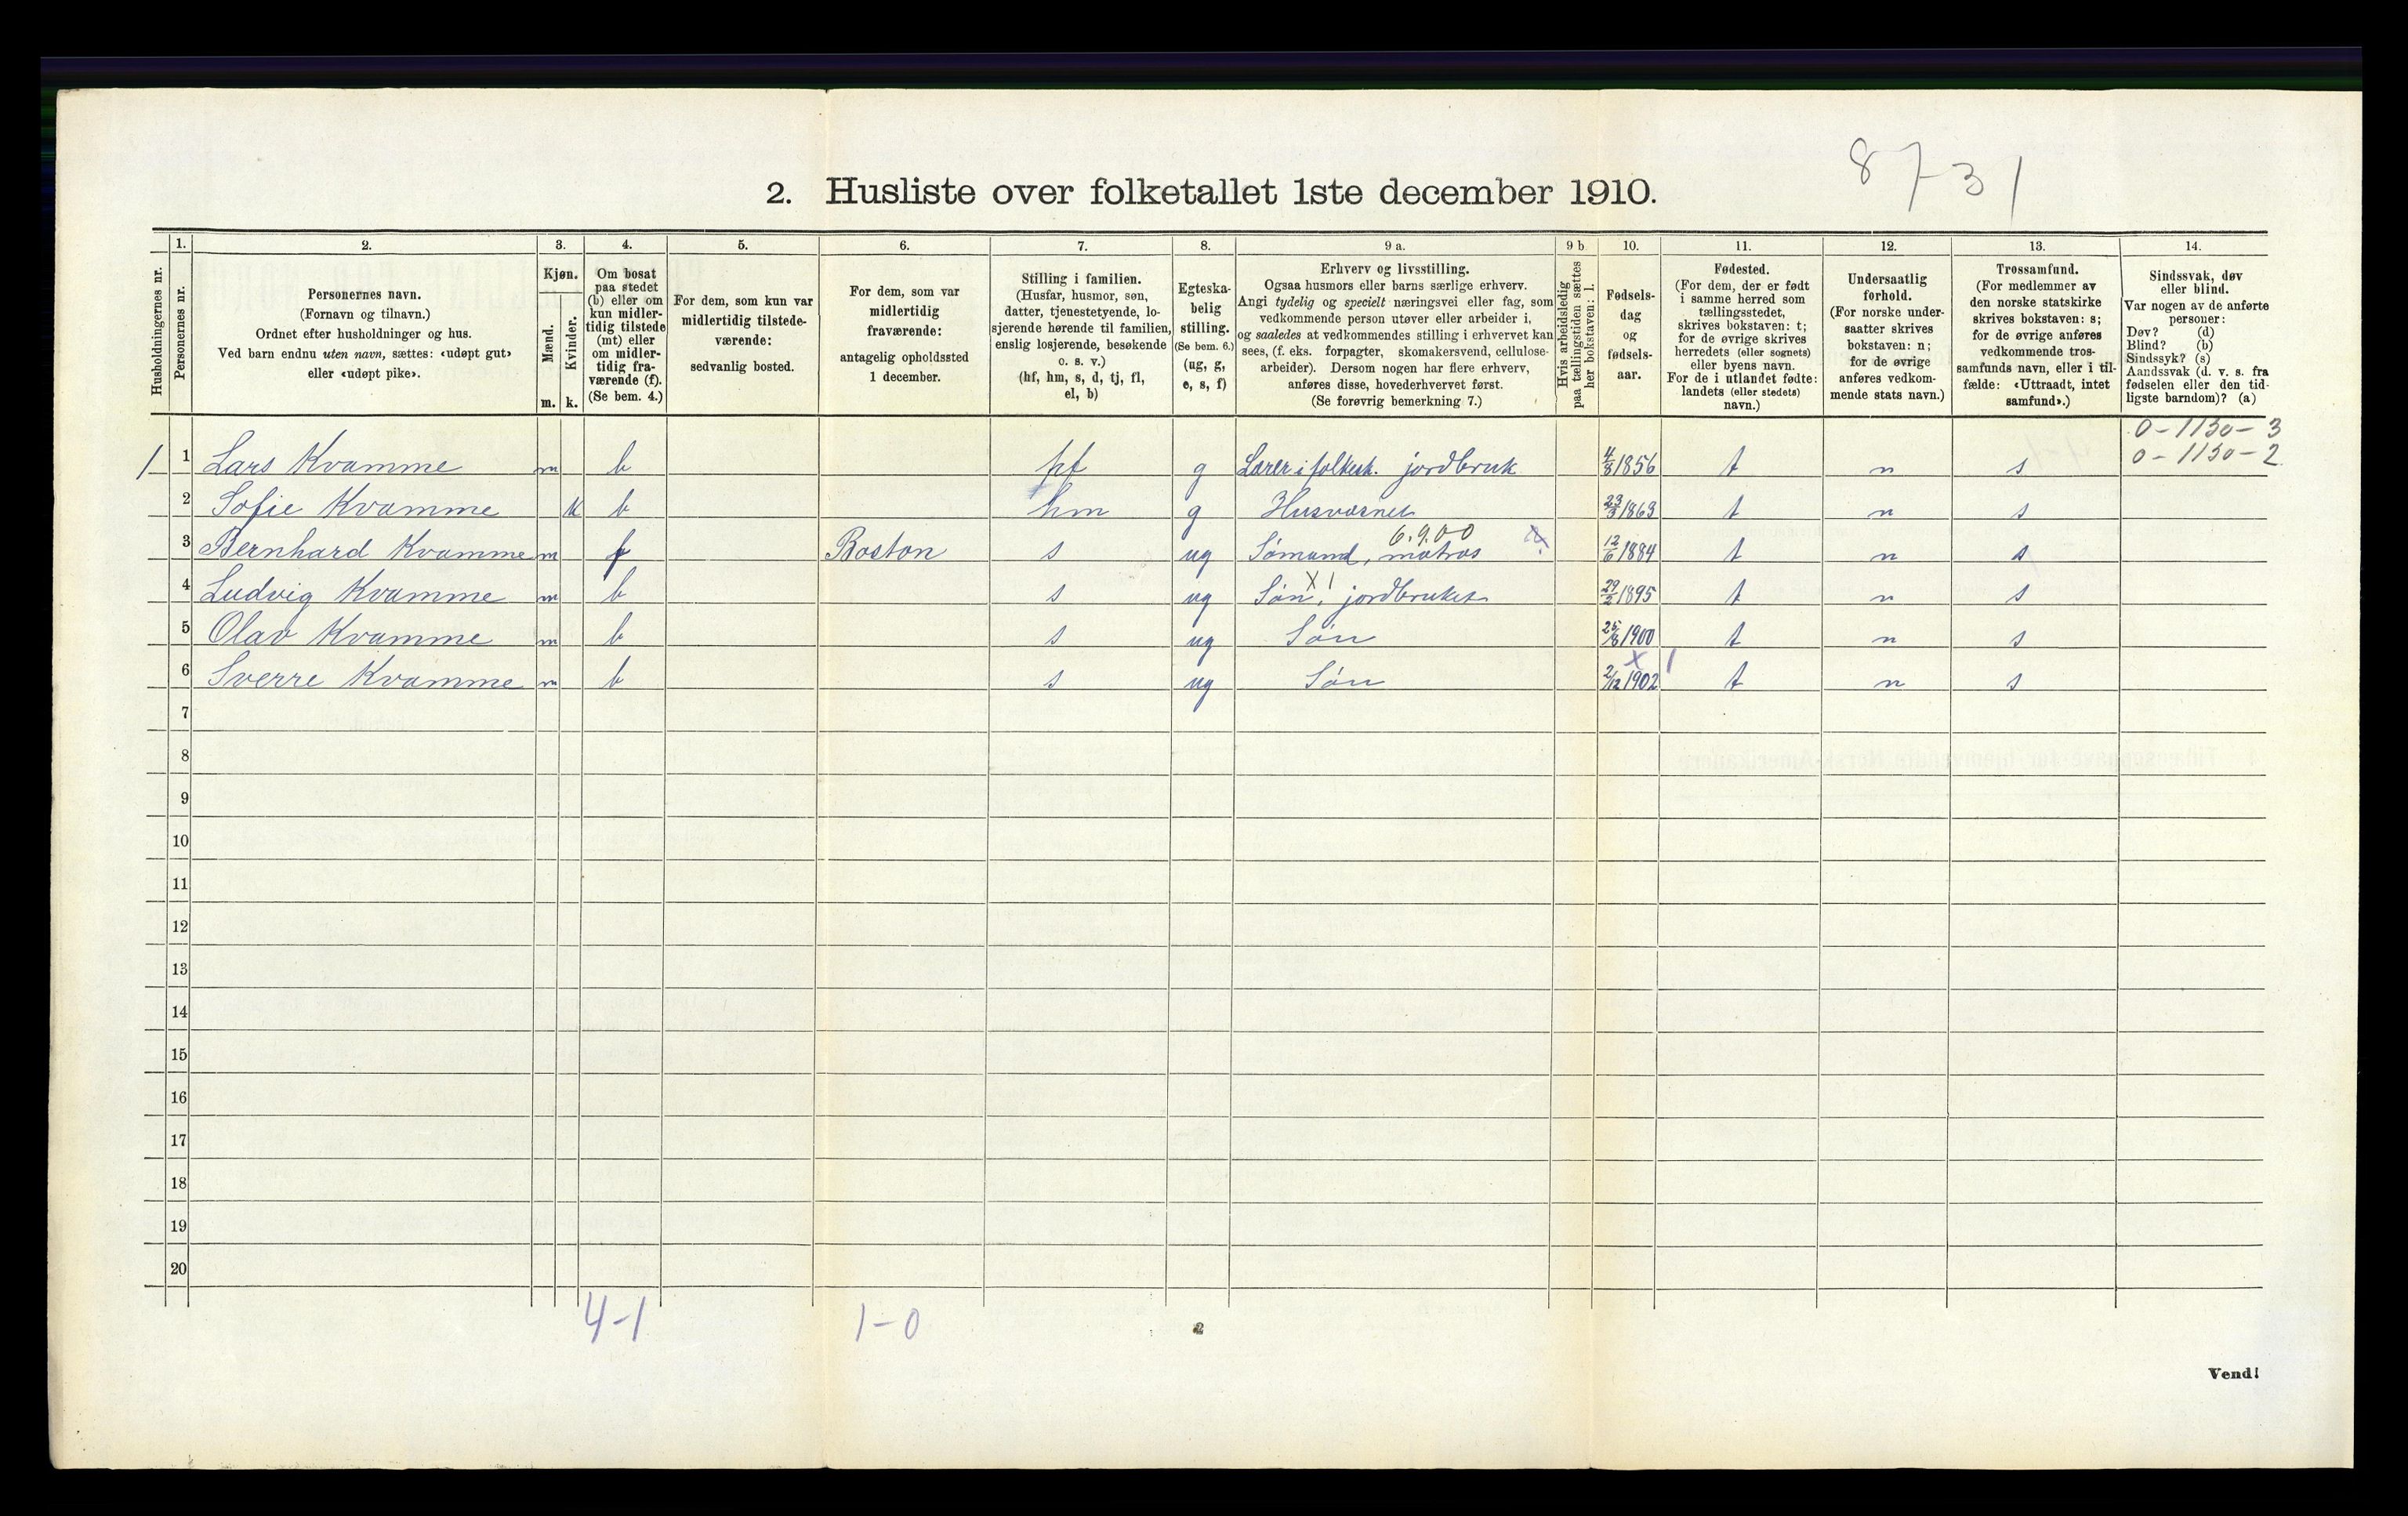 8731
2. Husliste over folketallet 1ste december 1910.
Husholdningernes nr.
1.
Personernes nr.
2.
Personernes navn.
(Fornavn og tilnavn.)
Ordnet efter husholdninger og hus.
Ved barn endnu uten navn, sættes: «udøpt gut»
eller «udøpt pike».
3.
Kjøn.
Mænd.
Kvinder.
m. k.
4.
Om bosat
paa stedet
(b) eller om
kun midler-
tidig tilstede
(mt) eller
om midler-
tidig fra-
værende (f).
(Se bem. 4.)
5.
For dem, som kun var
midlertidig tilstede-
værende:
sedvanlig bosted.
6.
For dem, som var
midlertidig
fraværende:
antagelig opholdssted
1 december.
7.
Stilling i familien.
(Husfar, husmor, søn,
datter, tjenestetyende, lo-
sjerende hørende til familien,
enslig losjerende, besøkende
o. s. v.)
(hf, hm, s, d, tj, fl,
el, b)
8.
Egteska-
belig
stilling.
(Se bem. 6.)
(ug, g,
e, s, f)
9 a.
Erhverv og livsstilling.
Ogsaa husmors eller barns særlige erhverv.
Angi tydelig og specielt næringsvei eller fag, som
vedkommende person utøver eller arbeider i,
og saaledes at vedkommendes stilling i erhvervet kan
sees, (f. eks. forpagter, skomakersvend, cellulose-
arbeider). Dersom nogen har flere erhverv,
anføres disse, hovederhvervet først.
(Se forøvrig bemerkning 7.)
9 b
Hvis arbeidsledig
paa tællingstiden sættes
her bokstaven: l.
10.
Fødsels-
dag
og
fødsels-
aar.
11.
Fødested.
(For dem, der er født
i samme herred som
tællingsstedet,
skrives bokstaven: t;
for de øvrige skrives
herredets (eller sognets)
eller byens navn.
For de i utlandet fødte:
landets (eller stedets)
navn.)
12.
Undersaatlig
forhold.
(For norske under-
saatter skrives
bokstaven: n;
for de øvrige
anføres vedkom-
mende stats navn.)
13.
Trossamfund.
(For medlemmer av
den norske statskirke
skrives bokstaven: s;
for de øvrige anføres
vedkommende tros-
samfunds navn, eller i til-
fælde: «Uttraadt, intet
samfund».)
14.
Sindssvak, døv
eller blind.
Var nogen av de anførte
personer:
Døv? (d)
Blind? (b)
Sindssyk? (s)
Aandssvak (d. v. s. fra
fødselen eller den tid-
ligste barndom)? (a)
0-1130-3
0-1130-2
1 1 Lars Kvamme m b hf g Lærer i folkesk. jordbruk 4/8 1856 t n s
2 Sofie Kvamme k b hm g Husvæsnet 23/3 1863 t n s
6.9.00
3 Bernhard Kvamme m f Boston s ug Sømand, matros 12/6 1884 t n s
X 1
4 Ludvig Kvamme m b s ug Søn, jordbruket 29/2 1895 t n s
5 Olav Kvamme m b s ug Søn 25/8 1900 t n s
x 1
6 Sverre Kvamme m b s ug Søn 2/12 1902 t n s
7
8
9
10
11
12
13
14
15
16
17
18
19
20
4-1 1-0
2
Vend!